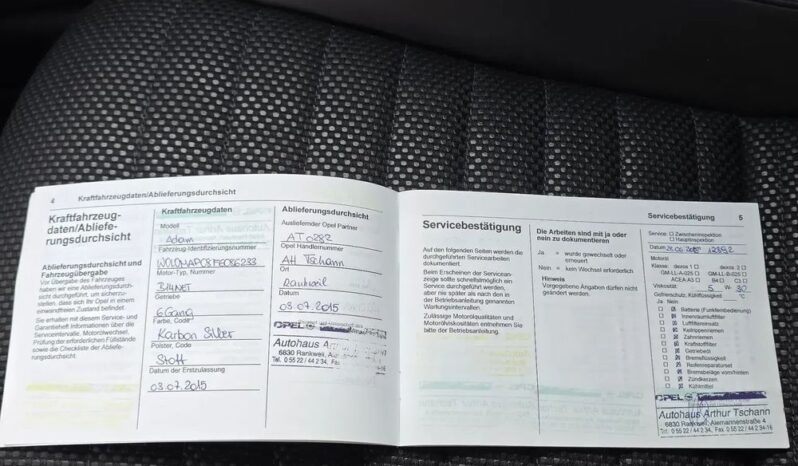 4 Kraftfahrzeugdaten/Ablieferungsdurchsicht
Kraftfahrzeug-
daten/Abliefe-
rungsdurchsicht
Ablieferungsdurchsicht und
Fahrzeugübergabe
Vor Übergabe des Fahrzeuges
haben wir eine Ablieferungsdurch-
sicht durchgeführt, um sicherzu-
stellen, dass Ihr Opel in einem
einwandfreien Zustand befindet.
Sie erhalten mit diesem Service- und
Garantieheft Informationen über die
Serviceintervalle, Motorölwechsel,
Prüfung der erforderlichen Füllstände
sowie die Checkliste der Abliefe-
rungsdurchsicht.
Kraftfahrzeugdaten
Modell
Adam
Fahrzeug-Identifizierungsnummer
Motor-Typ, Nummer
Getriebe
6 Gang
Farbe, Code
Karbon Silber
Polster, Code
Stoff
Datum der Erstzulassung
03.07.2015
Ablieferungsdurchsicht
Ausliefernder Opel Partner
AT0282
Opel Händlernummer
AH Tschann
Ort
Rankweil
Datum
03.07.2015
OPEL
Autohaus
6830 Rankweil,
Tel. 0 55 22 / 44 2 34,
Servicebestätigung
Auf den folgenden Seiten werden die
durchgeführten Servicearbeiten
dokumentiert.
Beim Erscheinen der Servicean-
zeige sollte schnellstmöglich ein
Service durchgeführt werden,
aber nie später als nach den in
der Betriebsanleitung genannten
Wartungsintervallen.
Zulässige Motorölqualitäten und
Motorölviskositäten entnehmen Sie
bitte der Betriebsanleitung.
Die Arbeiten sind mit ja oder
nein zu dokumentieren
Ja = wurde gewechselt oder
erneuert
Nein = kein Wechsel erforderlich
Hinweis
Vorgegebene Angaben dürfen nicht
geändert werden.
Servicebestätigung 5
Service: Zwischeninspektion
Hauptinspektion
Datum
Motoröl
Klasse: dexos 1 dexos 2
GM-LL-A-025 GM-LL-B-025
ACEA A3 B4 C3
Viskosität: 5 W 30
Gefrierschutz, Kühlflüssigkeit °C
Ja Nein
Batterie (Funkfernbedienung)
Innenraumluftfilter
Luftfiltereinsatz
Keilrippenriemen
Zahnriemen
Kraftstofffilter
Getriebeöl
Bremsflüssigkeit
Reifenreparaturset
Bremsbeläge vorn/hinten
Zündkerzen
Kühlmittel
OPEL
Autohaus Arthur Tschann
6830 Rankweil, Alemannenstraße 4
Tel. 0 55 22 / 44 2 34, Fax 0 55 22 / 44 2 34-16